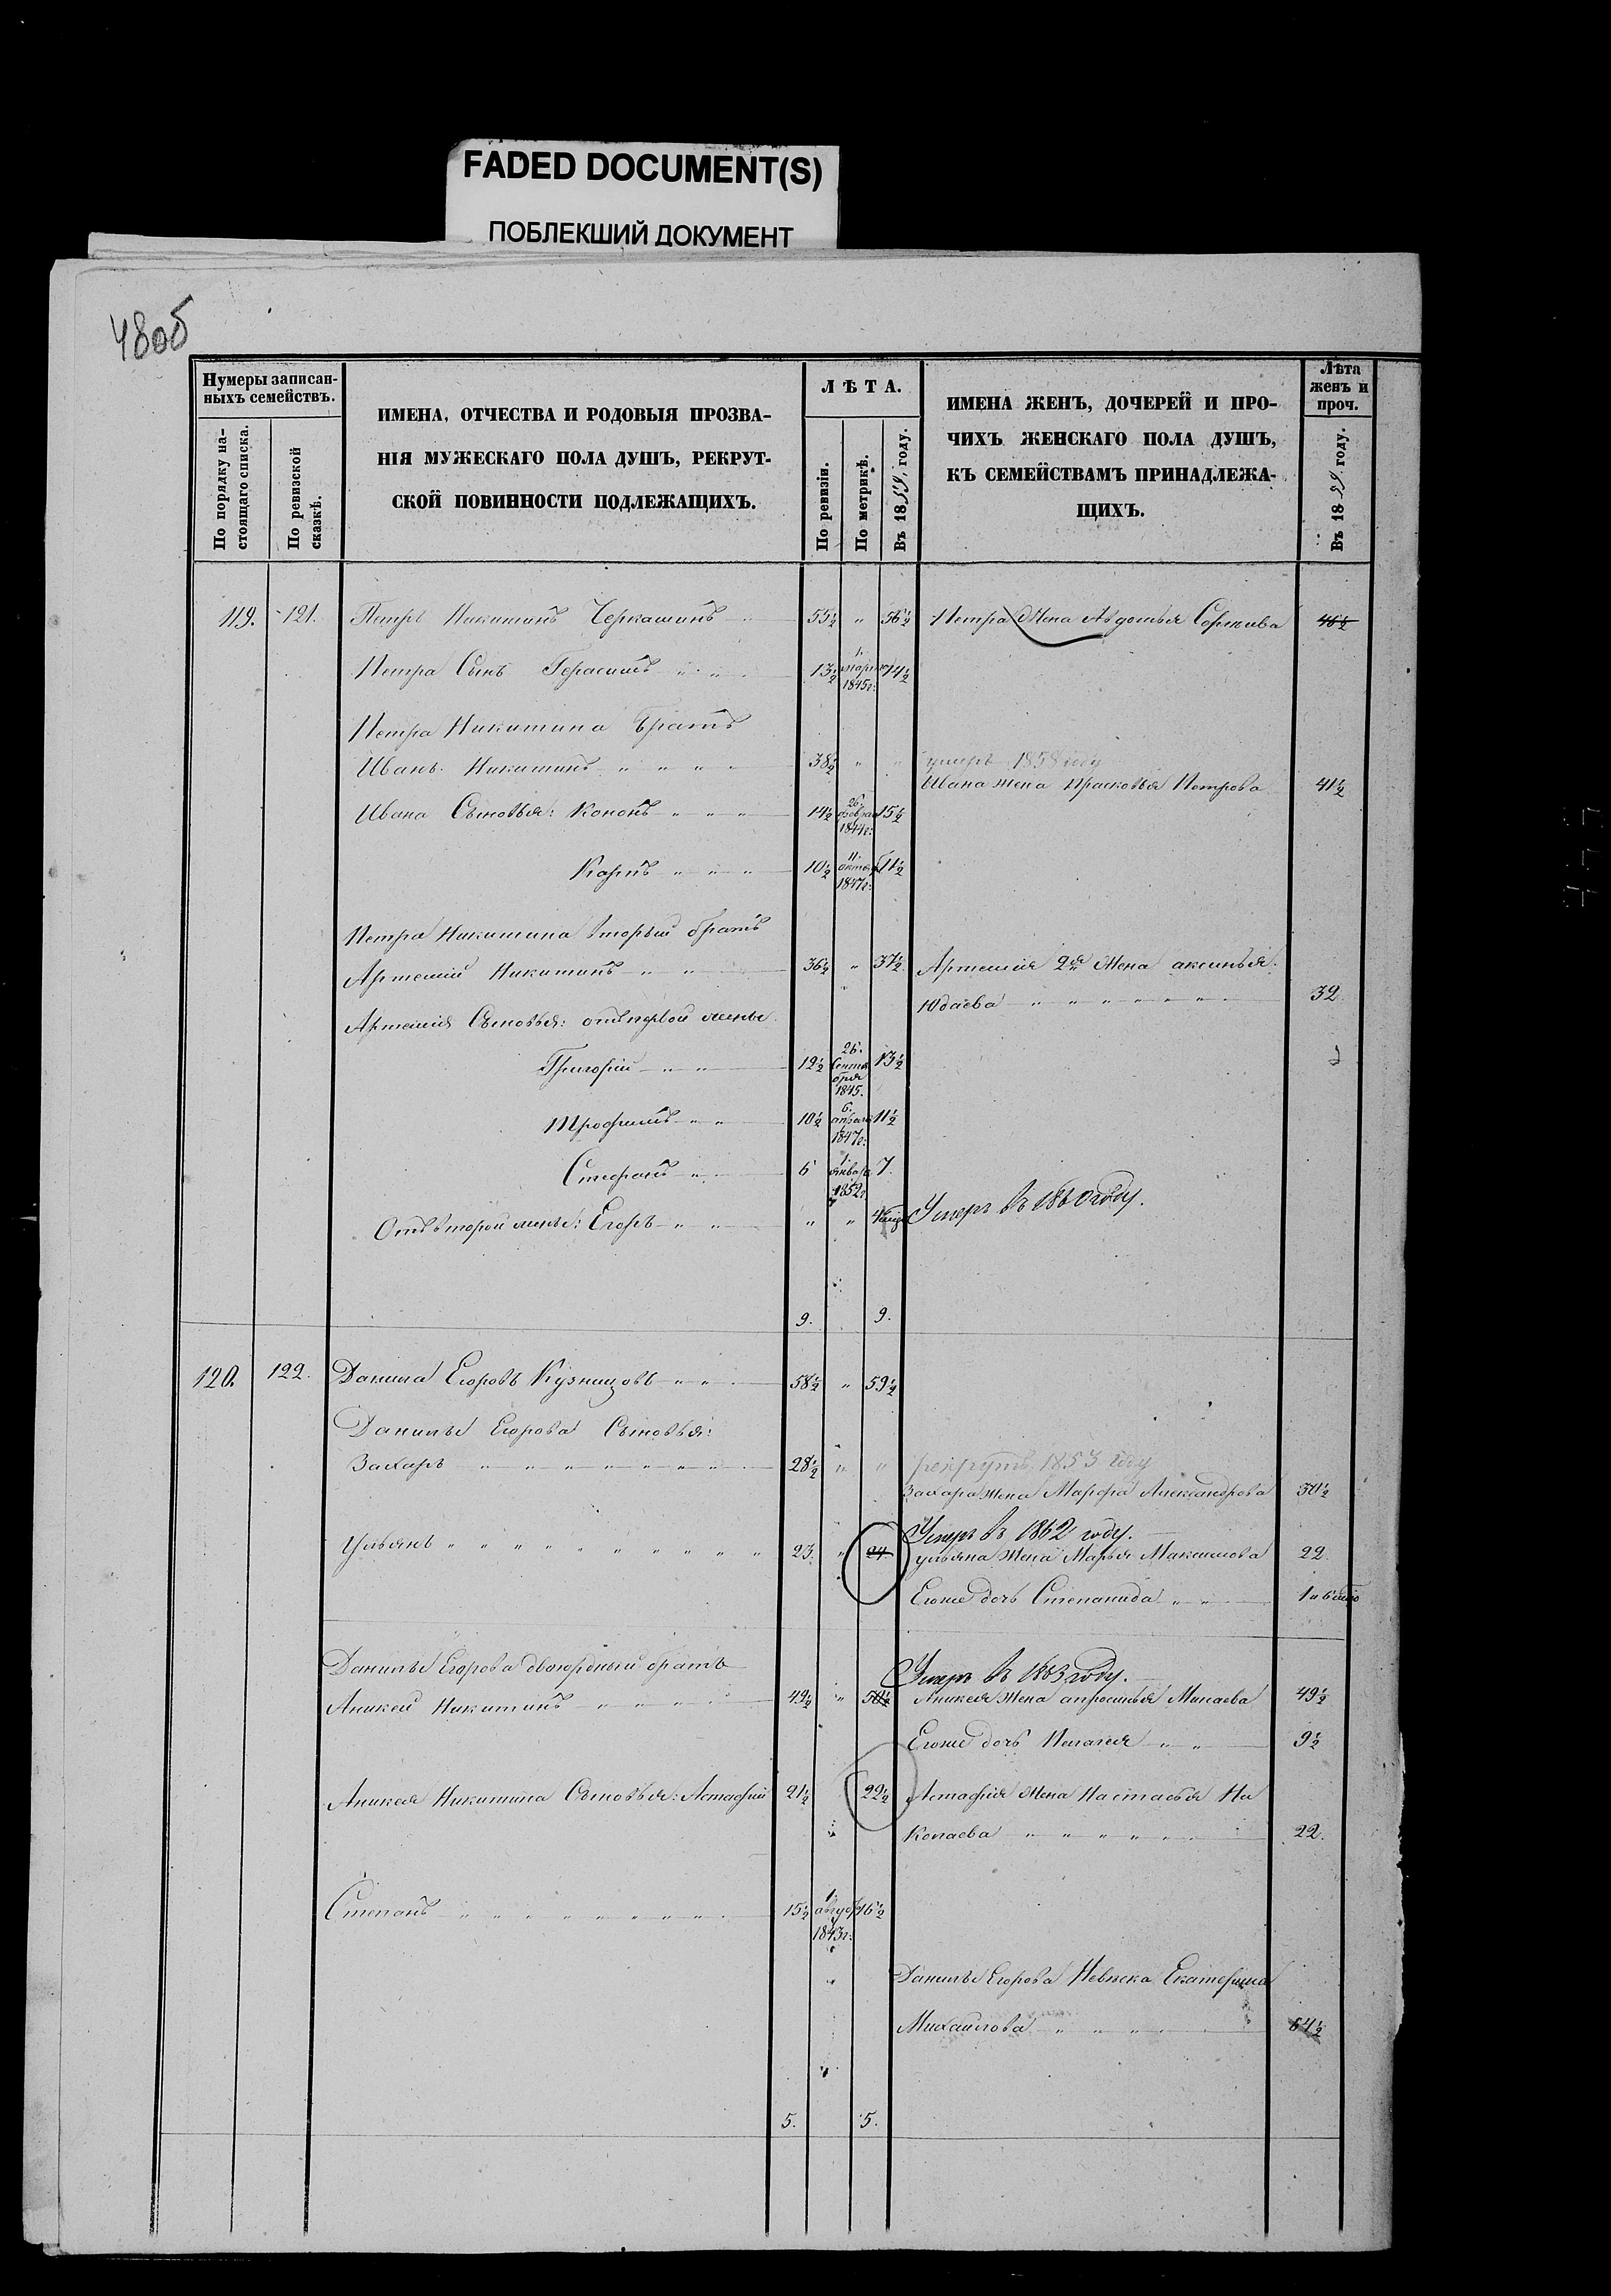 FADED DOCUMENT(S)
ПОБЛЕКШИЙ ДОКУМЕНТ
48об
Нумеры записан-
ныхъ семействъ.
По порядку на-
стоящаго списка.
По ревизской
сказкѣ.
ИМЕНА, ОТЧЕСТВА И РОДОВЫЯ ПРОЗВА-
НІЯ МУЖЕСКАГО ПОЛА ДУШЪ, РЕКРУТ-
СКОЙ ПОВИННОСТИ ПОДЛЕЖАЩИХЪ.
ЛѢТА.
По ревизіи.
По метрикѣ.
Въ 1859 году.
ИМЕНА ЖЕНЪ, ДОЧЕРЕЙ И ПРО-
ЧИХЪ ЖЕНСКАГО ПОЛА ДУШЪ,
КЪ СЕМЕЙСТВАМЪ ПРИНАДЛЕЖА-
ЩИХЪ.
Лѣта
женъ и
проч.
Въ 1859 году.
119. 121. Петръ Никитинъ Черкашинъ " 55½ " 56½ Петра Жена Авдотья 46½
Петра Сынъ Герасимъ " " 13½ 1. марта 1845г: 14½
Петра Никитина Братъ
Иванъ Никитинъ " " " " 38½ " " умеръ 1858 году
Ивана жена Прасковья Петрова 41½
Ивана Сыновья: Кононъ " " " 14½ 26. феврал 1844г: 15½
Карпъ " " " 10½ 11. октяб 1847г: 11½
Петра Никитина вторый братъ
Артемій Никитинъ " " 36½ " 37½ Артемія 2я Жена аксинья
Юдаева " " " " " " " 32
Артемія Сыновья: отъ первой жены
Григорій " " 12½ 26. Сентя бря 1845. 13½
Трофимъ " " 10½ 6. 1847г: 11½
Стефанъ " 6 1. января 1852г. 7.
Отъ второй жены: Егоръ " " " " Умеръ въ 1860 году.
9. 9.
120. 122. Данила Егоровъ Кузницовъ " " 58½ " 59½
Данилы Егорова Сыновья:
Захаръ " " " " " " " " 28½ " " рекрутъ 1853 году
Захара жена Марфа Александрова 30½
Умеръ въ 1862 году.
Ульянъ " " " " " " " " " " 23. " 24 ульяна Жена Марья Максимова 22
Егоже дочь Степанида " "
Данилы Егорова двоюродный братъ
Умеръ въ 1863 году.
Аникей Никитинъ " " " " 49½ " 50½ Аникея Жена апросинья Минаева 49½
Егоже дочь Пелагея " " 9½
Аникея Никитина Сыновья: Астафій 21½ 22½ Астафія Жена Настасья На
Копаева " " " " " 22.
Степанъ " " " " " " " " " 15½ 1. август 1843г: 16½
Данилы Егорова Невѣска Екатерина
Михаилова " " " " 64½
5. 5.